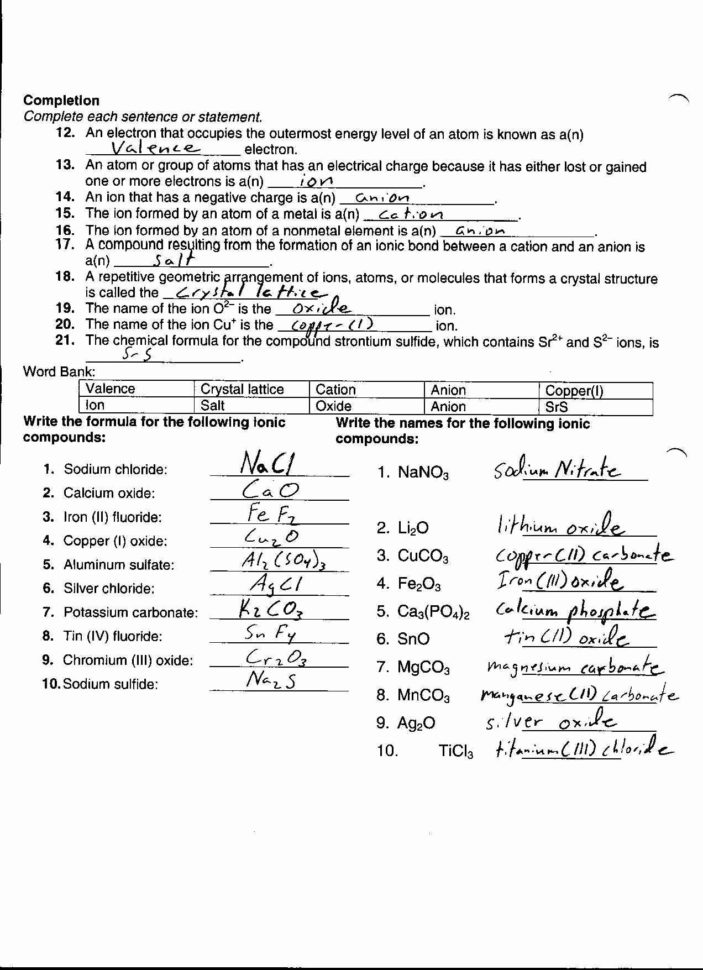 Completion
Complete each sentence or statement.
12. An electron that occupies the outermost energy level of an atom is known as a(n)
Valence electron.
13. An atom or group of atoms that has an electrical charge because it has either lost or gained
one or more electrons is a(n) ion.
14. An ion that has a negative charge is a(n) anion.
15. The ion formed by an atom of a metal is a(n) cation.
16. The ion formed by an atom of a nonmetal element is a(n) anion.
17. A compound resulting from the formation of an ionic bond between a cation and an anion is
a(n) salt.
18. A repetitive geometric arrangement of ions, atoms, or molecules that forms a crystal structure
is called the crystal lattice.
19. The name of the ion O²⁻ is the oxide ion.
20. The name of the ion Cu⁺ is the copper-(I) ion.
21. The chemical formula for the compound strontium sulfide, which contains Sr²⁺ and S²⁻ ions, is
SrS.
Word Bank:
Valence Crystal lattice Cation Anion Copper(I)
Ion Salt Oxide Anion SrS
Write the formula for the following ionic
compounds:
1. Sodium chloride: NaCl
2. Calcium oxide: CaO
3. Iron (II) fluoride: FeF₂
4. Copper (I) oxide: Cu₂O
5. Aluminum sulfate: Al₂(SO₄)₃
6. Silver chloride: AgCl
7. Potassium carbonate: K₂CO₃
8. Tin (IV) fluoride: SnF₄
9. Chromium (III) oxide: Cr₂O₃
10. Sodium sulfide: Na₂S
Write the names for the following ionic
compounds:
1. NaNO₃ Sodium Nitrate
2. Li₂O lithium oxide
3. CuCO₃ copper(II) carbonate
4. Fe₂O₃ Iron(III) oxide
5. Ca₃(PO₄)₂ Calcium phosphate
6. SnO tin(II) oxide
7. MgCO₃ magnesium carbonate
8. MnCO₃ manganese(II) carbonate
9. Ag₂O silver oxide
10. TiCl₃ titanium(III) chloride